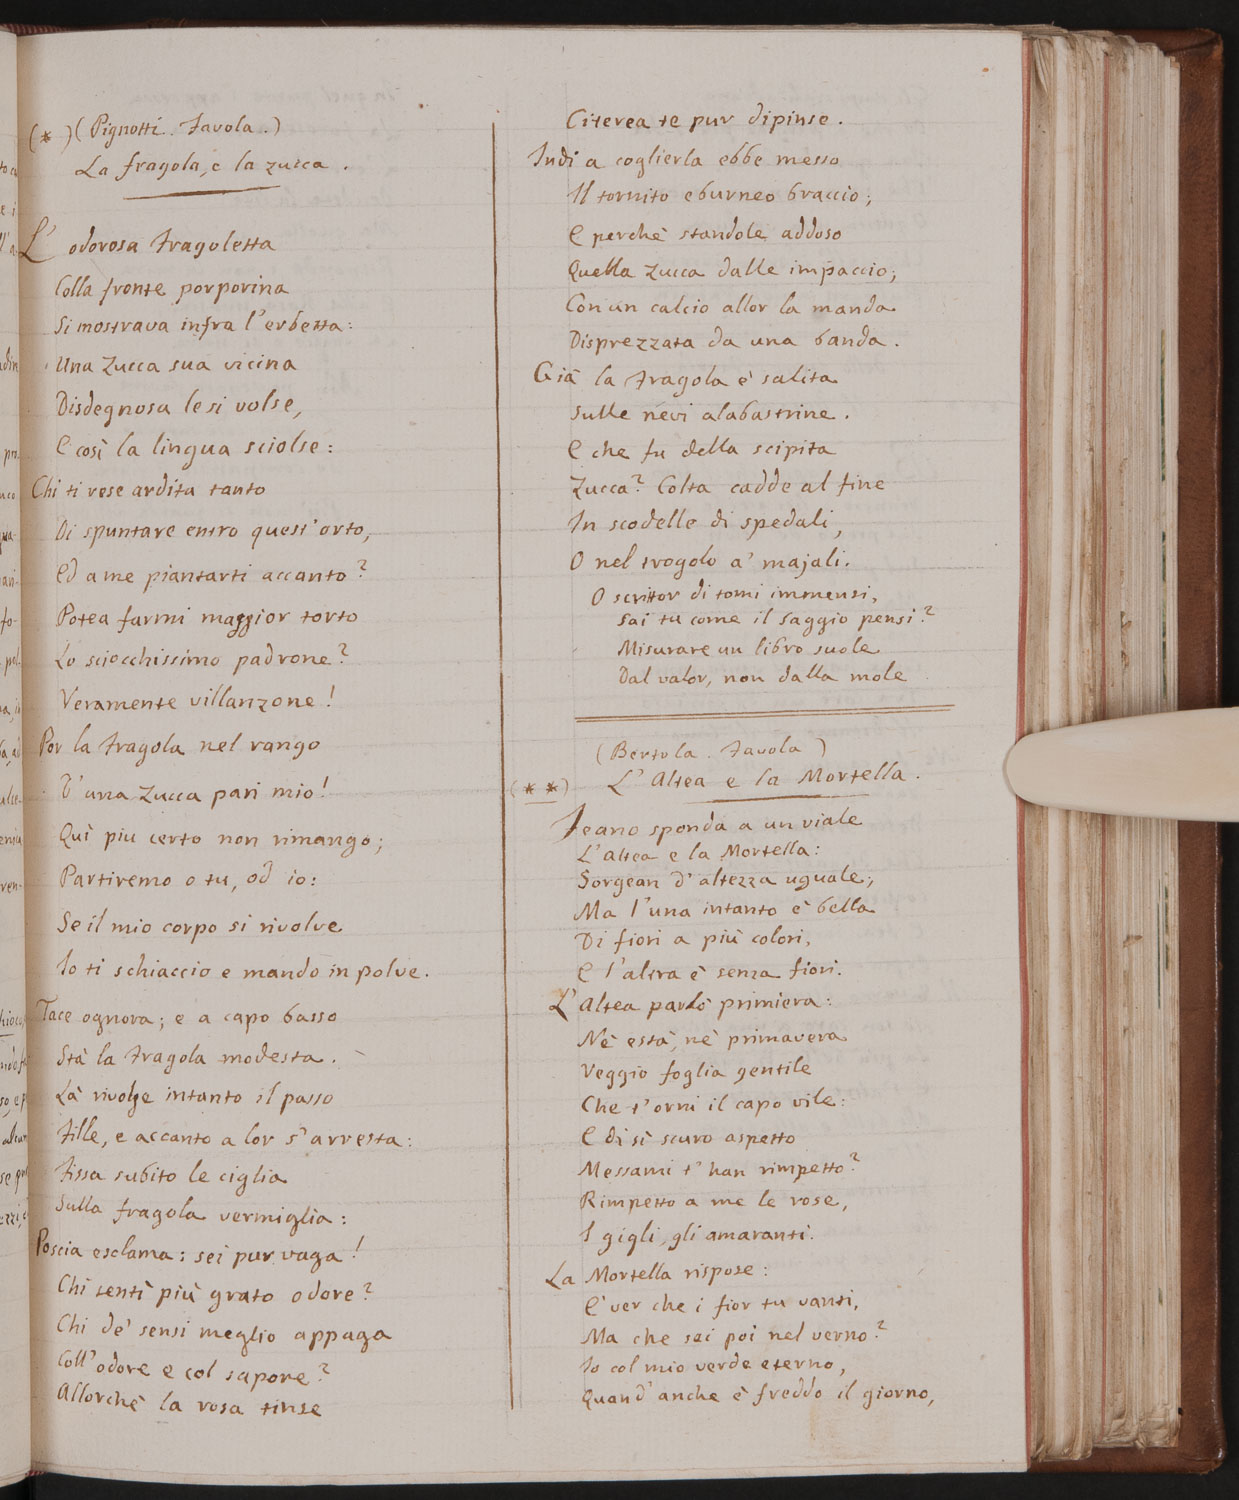 (*) (Pignotti. Favola.)
La fragola, e la zucca.
L' odorosa Fragoletta
Colla fronte porporina
Si mostrava infra l'erbetta:
Una Zucca sua vicina
Disdegnosa le si volse,
E così la lingua sciolse:
Chi ti rese ardita tanto
Di spuntare entro quest'orto,
Ed a me piantarti accanto?
Potea farmi maggior torto
Lo sciocchissimo padrone?
Veramente villanzone!
Por la Fragola nel rango
D'una Zucca pari mio!
Quì piu certo non rimango;
Partiremo o tu, od io:
Se il mio corpo si rivolve
Io ti schiaccio e mando in polve.
Tace ognora; e a capo basso
Stà la Fragola modesta.
Là rivolge intanto il passo
Fille, e accanto a lor s'arresta:
Fissa subito le ciglia
Sulla fragola vermiglia:
Poscia esclama: sei pur vaga!
Chi sentì più grato odore?
Chi de' sensi meglio appaga
Coll'odore e col sapore?
Allorchè la rosa tinse
Citerea te pur dipinse.
Indi a coglierla ebbe messo
Il tornito eburneo braccio;
E perchè standole addoso
Quella Zucca dalle impaccio;
Con un calcio allor la manda
Disprezzata da una banda.
Già la Fragola è salita
Sulle nevi alabastrine.
E che fu della scipita
Zucca? Colta cadde al fine
In scodelle di spedali,
O nel trogolo a' majali.
O scrittor di tomi immensi,
Sai tu come il Saggio pensi?
Misurare un libro suole
Dal valor, non dalla mole
(Bertola. Favola)
(**) L'Altea e la Mortella.
Feano sponda a un viale
L'Altea e la Mortella:
Sorgean d'altezza uguale;
Ma l'una intanto è bella
Di fiori a più colori,
E l'altra è senza fiori.
L'Altea parlò primiera:
Nè està, nè primavera
Veggio foglia gentile
Che t'orni il capo vile:
E di sì scuro aspetto
Messami t'han rimpetto?
Rimpetto a me le rose,
I gigli, gli amaranti.
La Mortella rispose:
E'ver che i fior tu vanti,
Ma che sei poi nel verno?
Io col mio verde eterno,
Quand'anche è freddo il giorno,